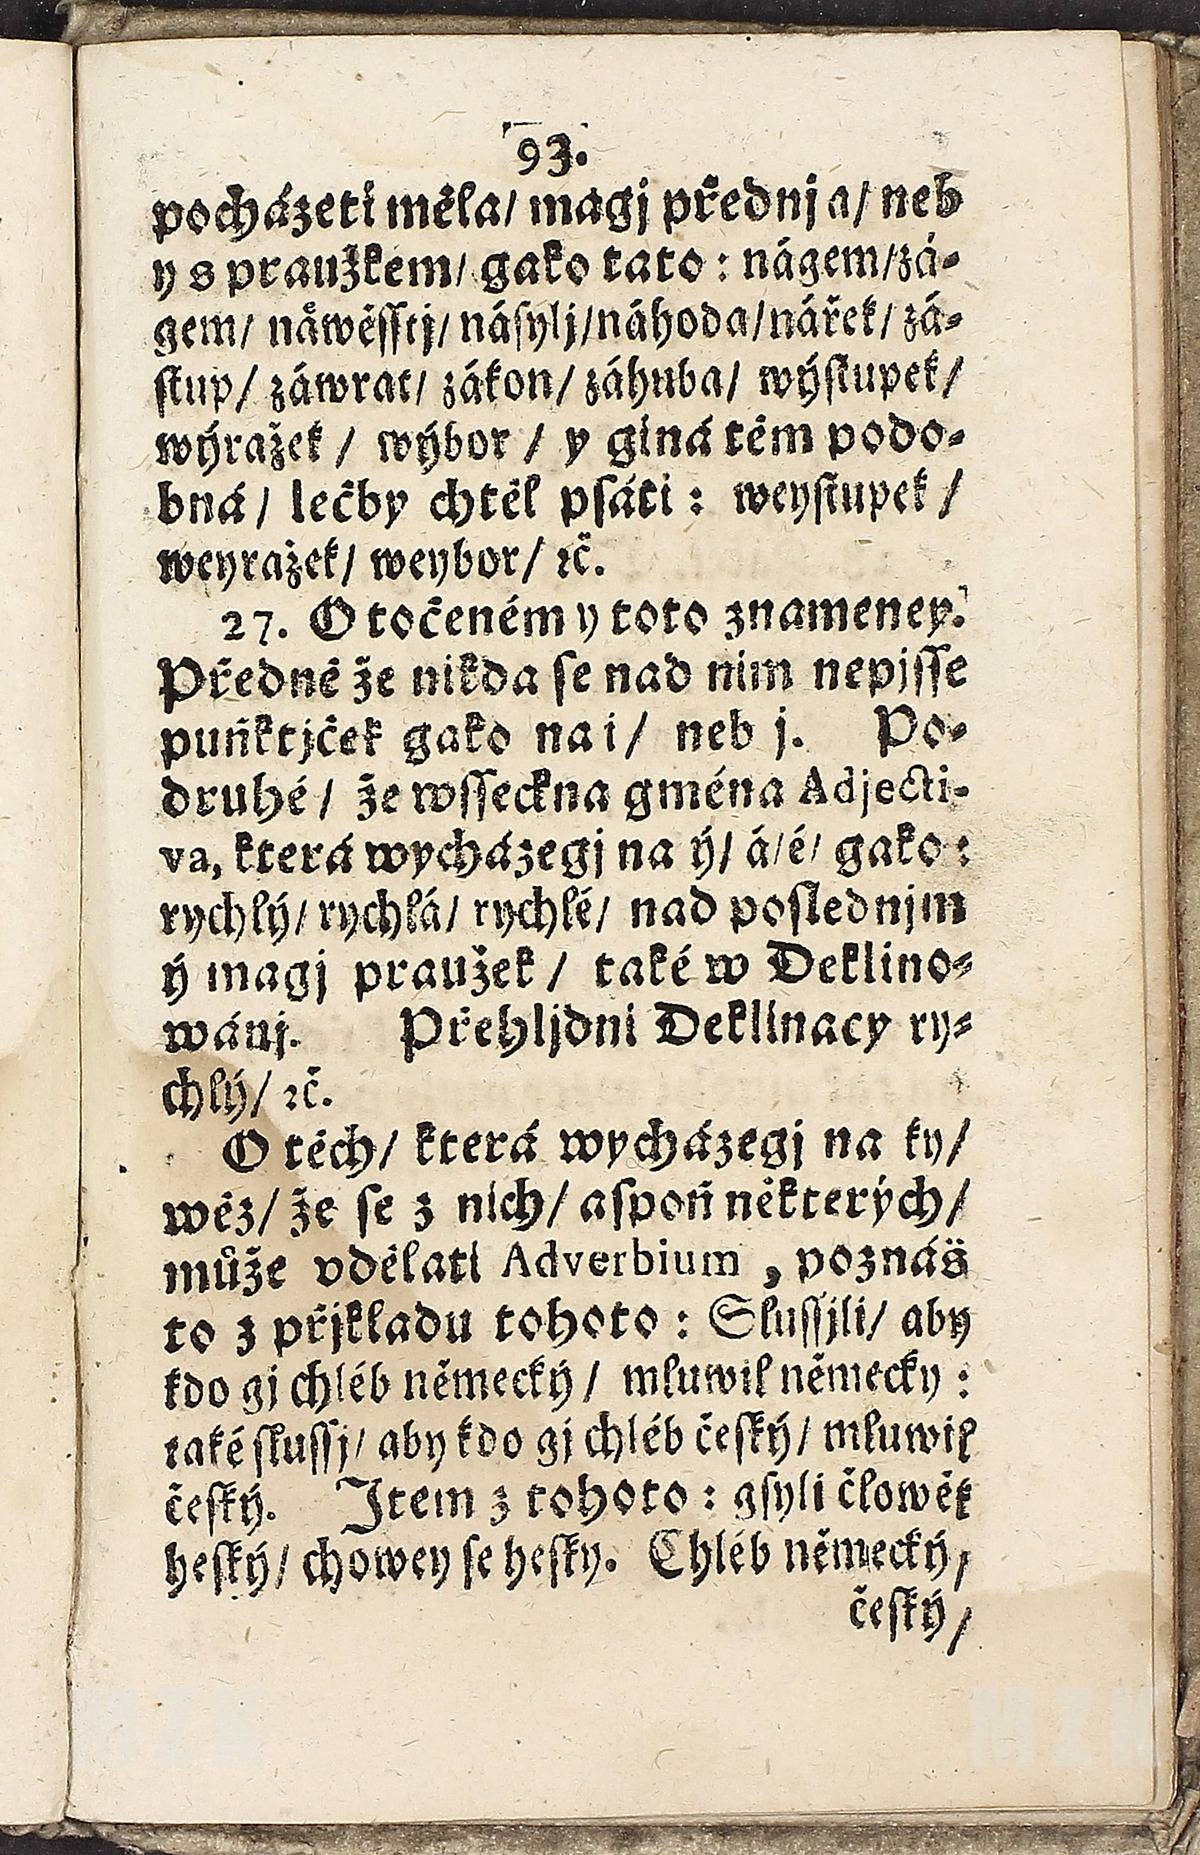 93.
pocházeti měla/ magj přednj a/ neb
y s praužkem/ gako tato: nágem/zá-
gem/ náwěsstj/ násylj/náhoda/nářek/ zá-
stup/ záwrat/ zákon/ záhuba/ wýstupek/
wýražek/ wýbor/ y giná těm podo-
bná/ lečby chtěl psáti: weystupek/
weyražek/ weybor/ ꝛč.
27. O točeném y toto znameney.
Předně že nikda se nad nim nepjsse
puňktjček gako na i/ neb j. Po-
druhé/ že wsseckna gména Adjecti-
va, která wycházegj na ý/ á/é/ gako:
rychlý/ rychlá/ rychlé/ nad poslednjm
ý magj praužek/ také w Deklino-
wánj. Přehljdni Deklinacy ry-
chlý/ ꝛč.
O těch/ která wycházegj na ky/
wěz/ že se z nich/ aspoň některých/
může vdělati Adverbium, poznáš
to z přjkladu tohoto: Slussjli/ aby
kdo gj chléb německý/ mluwil německy:
také slussj/ aby kdo gj chléb český/ mluwil
český. Item z tohoto: gsyli člowěk
heský/ chowey se hesky. Chléb německý,
český/
MZK
MZK